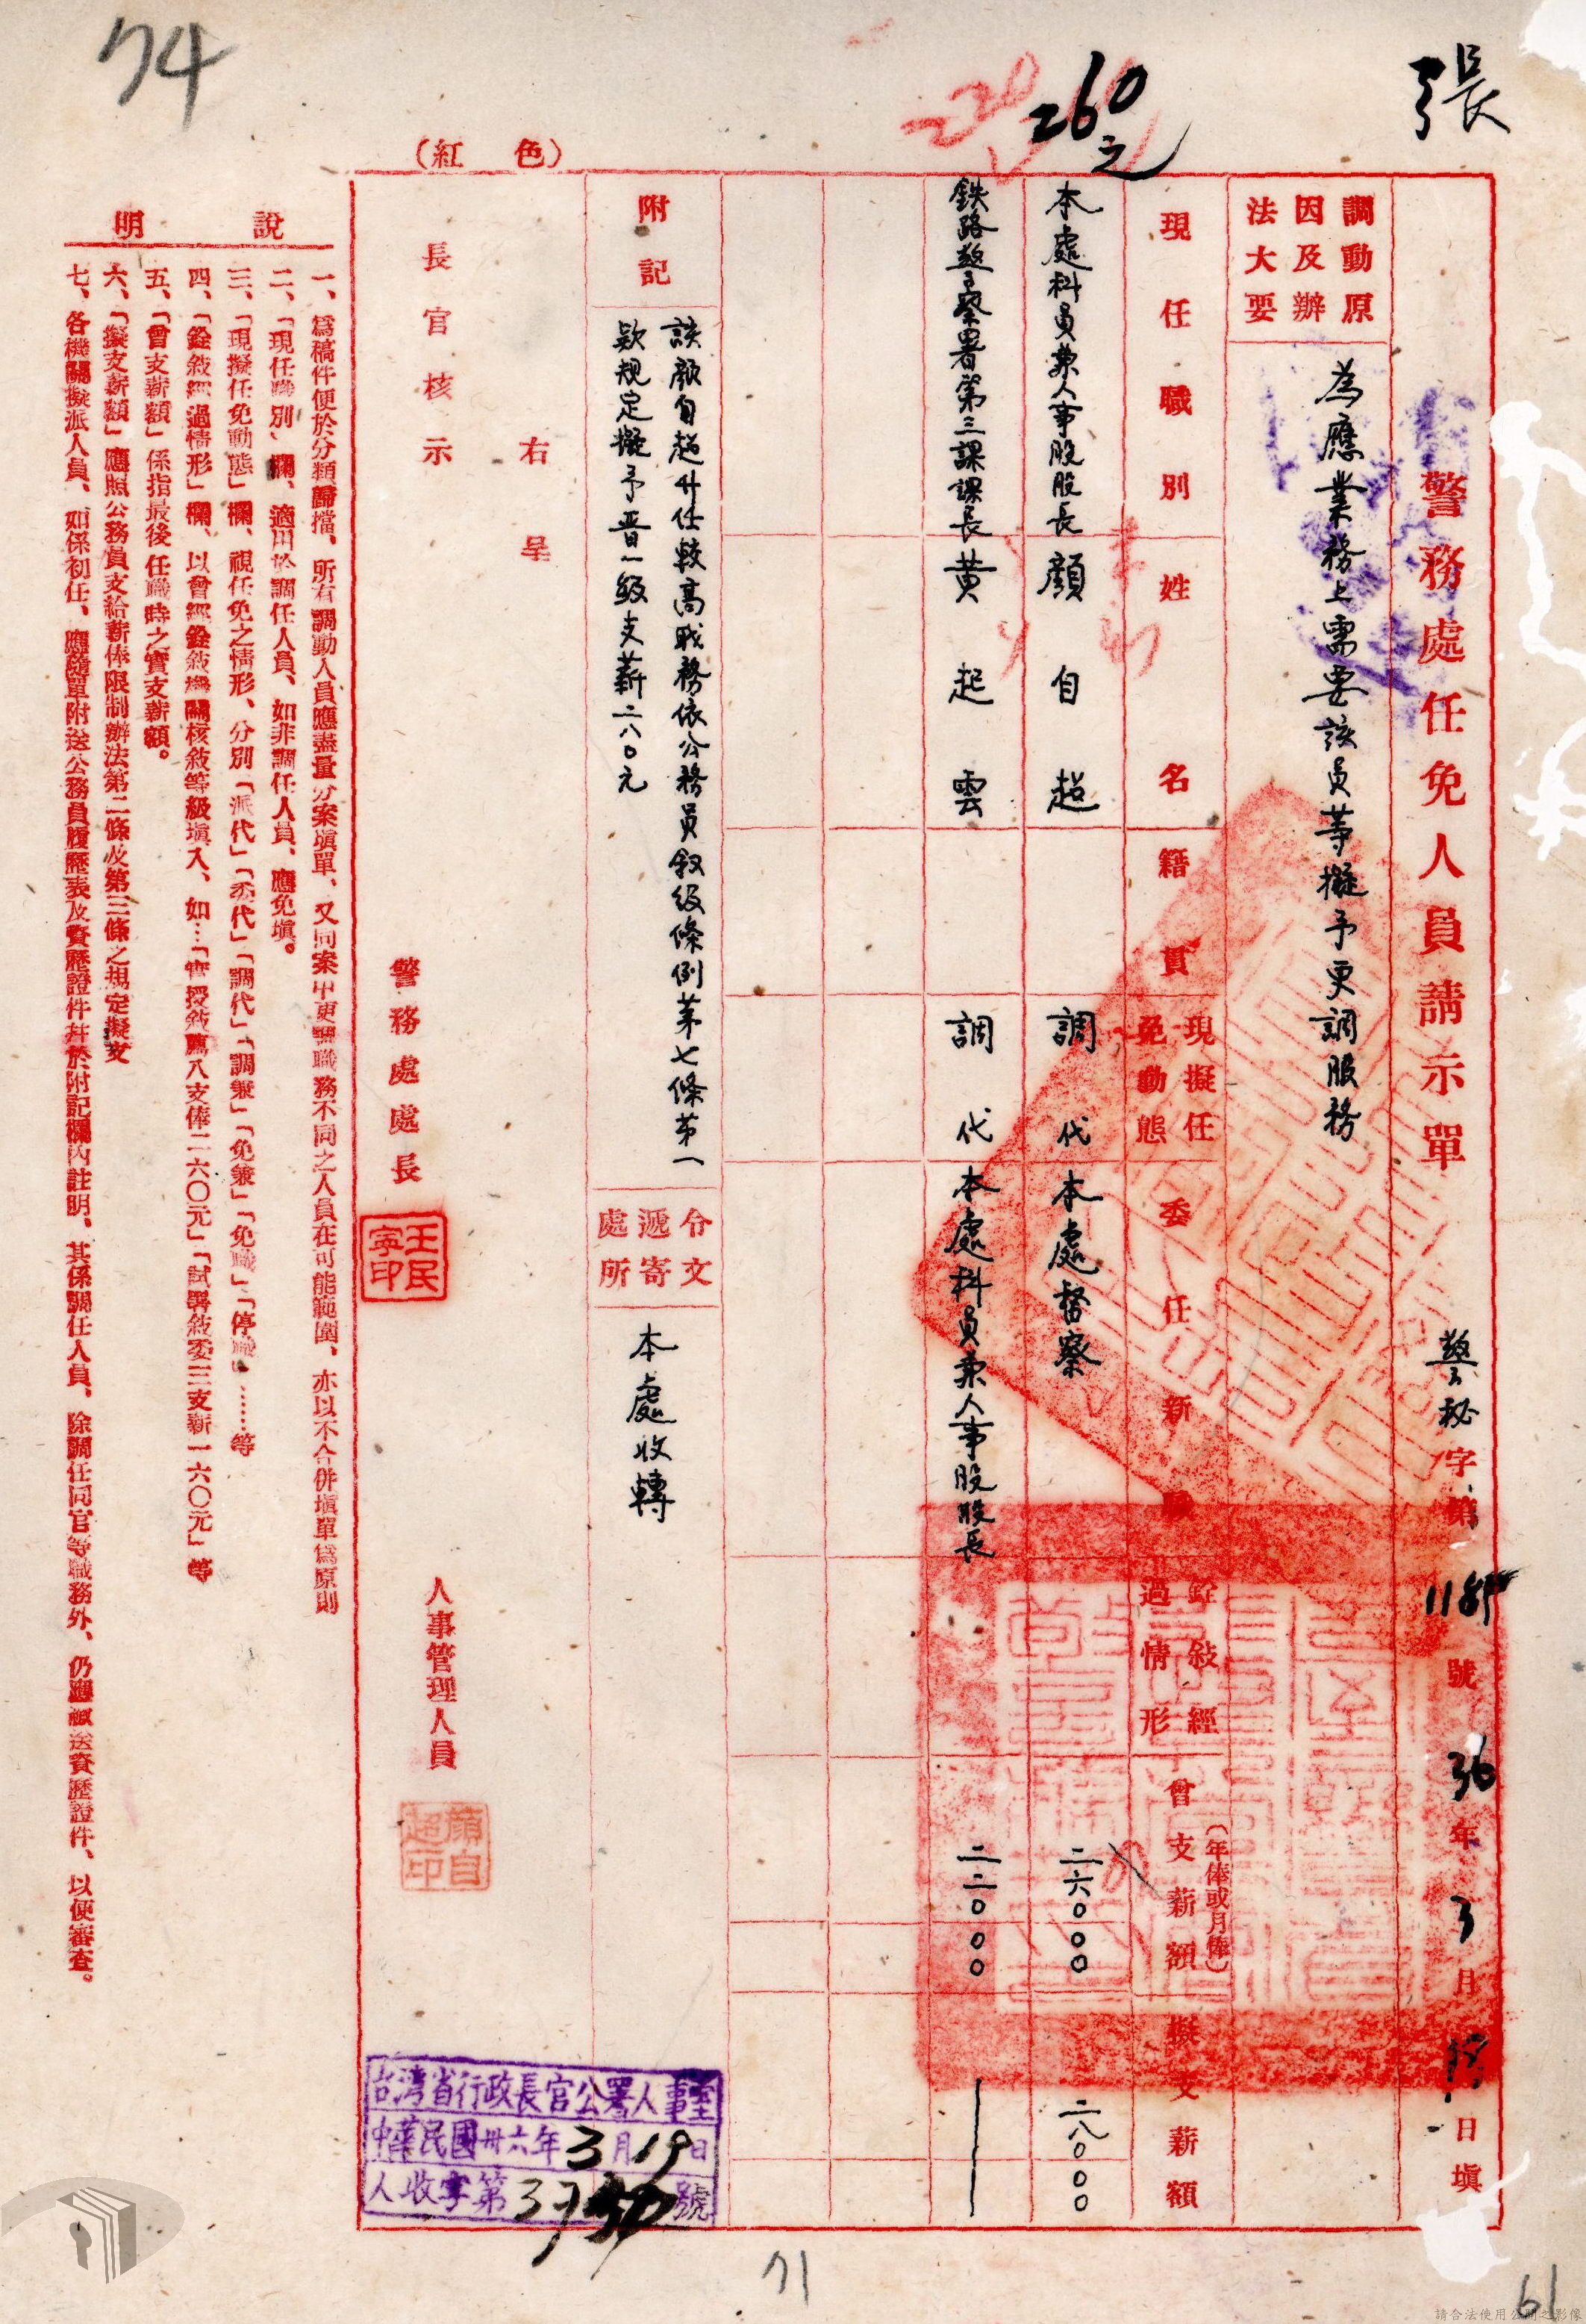 張
260元
220
74
警務處任免人員請示單
警秘字第118號 36年3月 日塡
調動原因及辦法大要
為應業務上需要該員等擬予更調服務
現任職別
姓名
籍貫
現擬任免動態
委任新職
銓敍經過情形
曾支薪額（年俸或月俸）
擬支薪額
本處科員兼人事股股長 顏自超 調代 本處督察 二六〇〇〇 二八〇〇〇
鉄路警察署第三課課長 黃起雲 調代 本處科員兼人事股股長 二二〇〇〇 —
附記
該顏自超升任較高職務依公務員敘級條例第七條第一
款規定擬予晋一級支薪二八〇元
令文遞寄處所
本處收轉
右呈
長官核示
警務處處長
王民寧印
人事管理人員
顏自超印
台灣省行政長官公署人事室
中華民國卅六年3月19日
人收字第3730號
（紅色）
說明
一、爲稿件便於分類歸檔、所有調動人員應盡量分案塡單、又同案中更調職務不同之人員在可能範圍、亦以不合併塡單爲原則
二、「現任職別」欄、適用於調任人員、如非調任人員、應免塡。
三、「現擬任免動態」欄、視任免之情形、分別「派代」「委代」「調代」「調兼」「免兼」「免職」「停職」……等
四、「銓敍經過情形」欄、以曾經銓敍機關核敍等級塡入、如…「實授敍薦八支俸二六〇元」「試署敍委三支薪一六〇元」等
五、「曾支薪額」係指最後任職時之實支薪額。
六、「擬支薪額」應照公務員支給薪俸限制辦法第二條及第三條之規定擬支
七、各機關擬派人員、如係初任、應隨單附送公務員履歷表及資歷證件幷於附記欄內註明、其係調任人員、除調任同官等職務外、仍應檢送資歷證件、以便審查。
71
61
請合法使用公開之影像